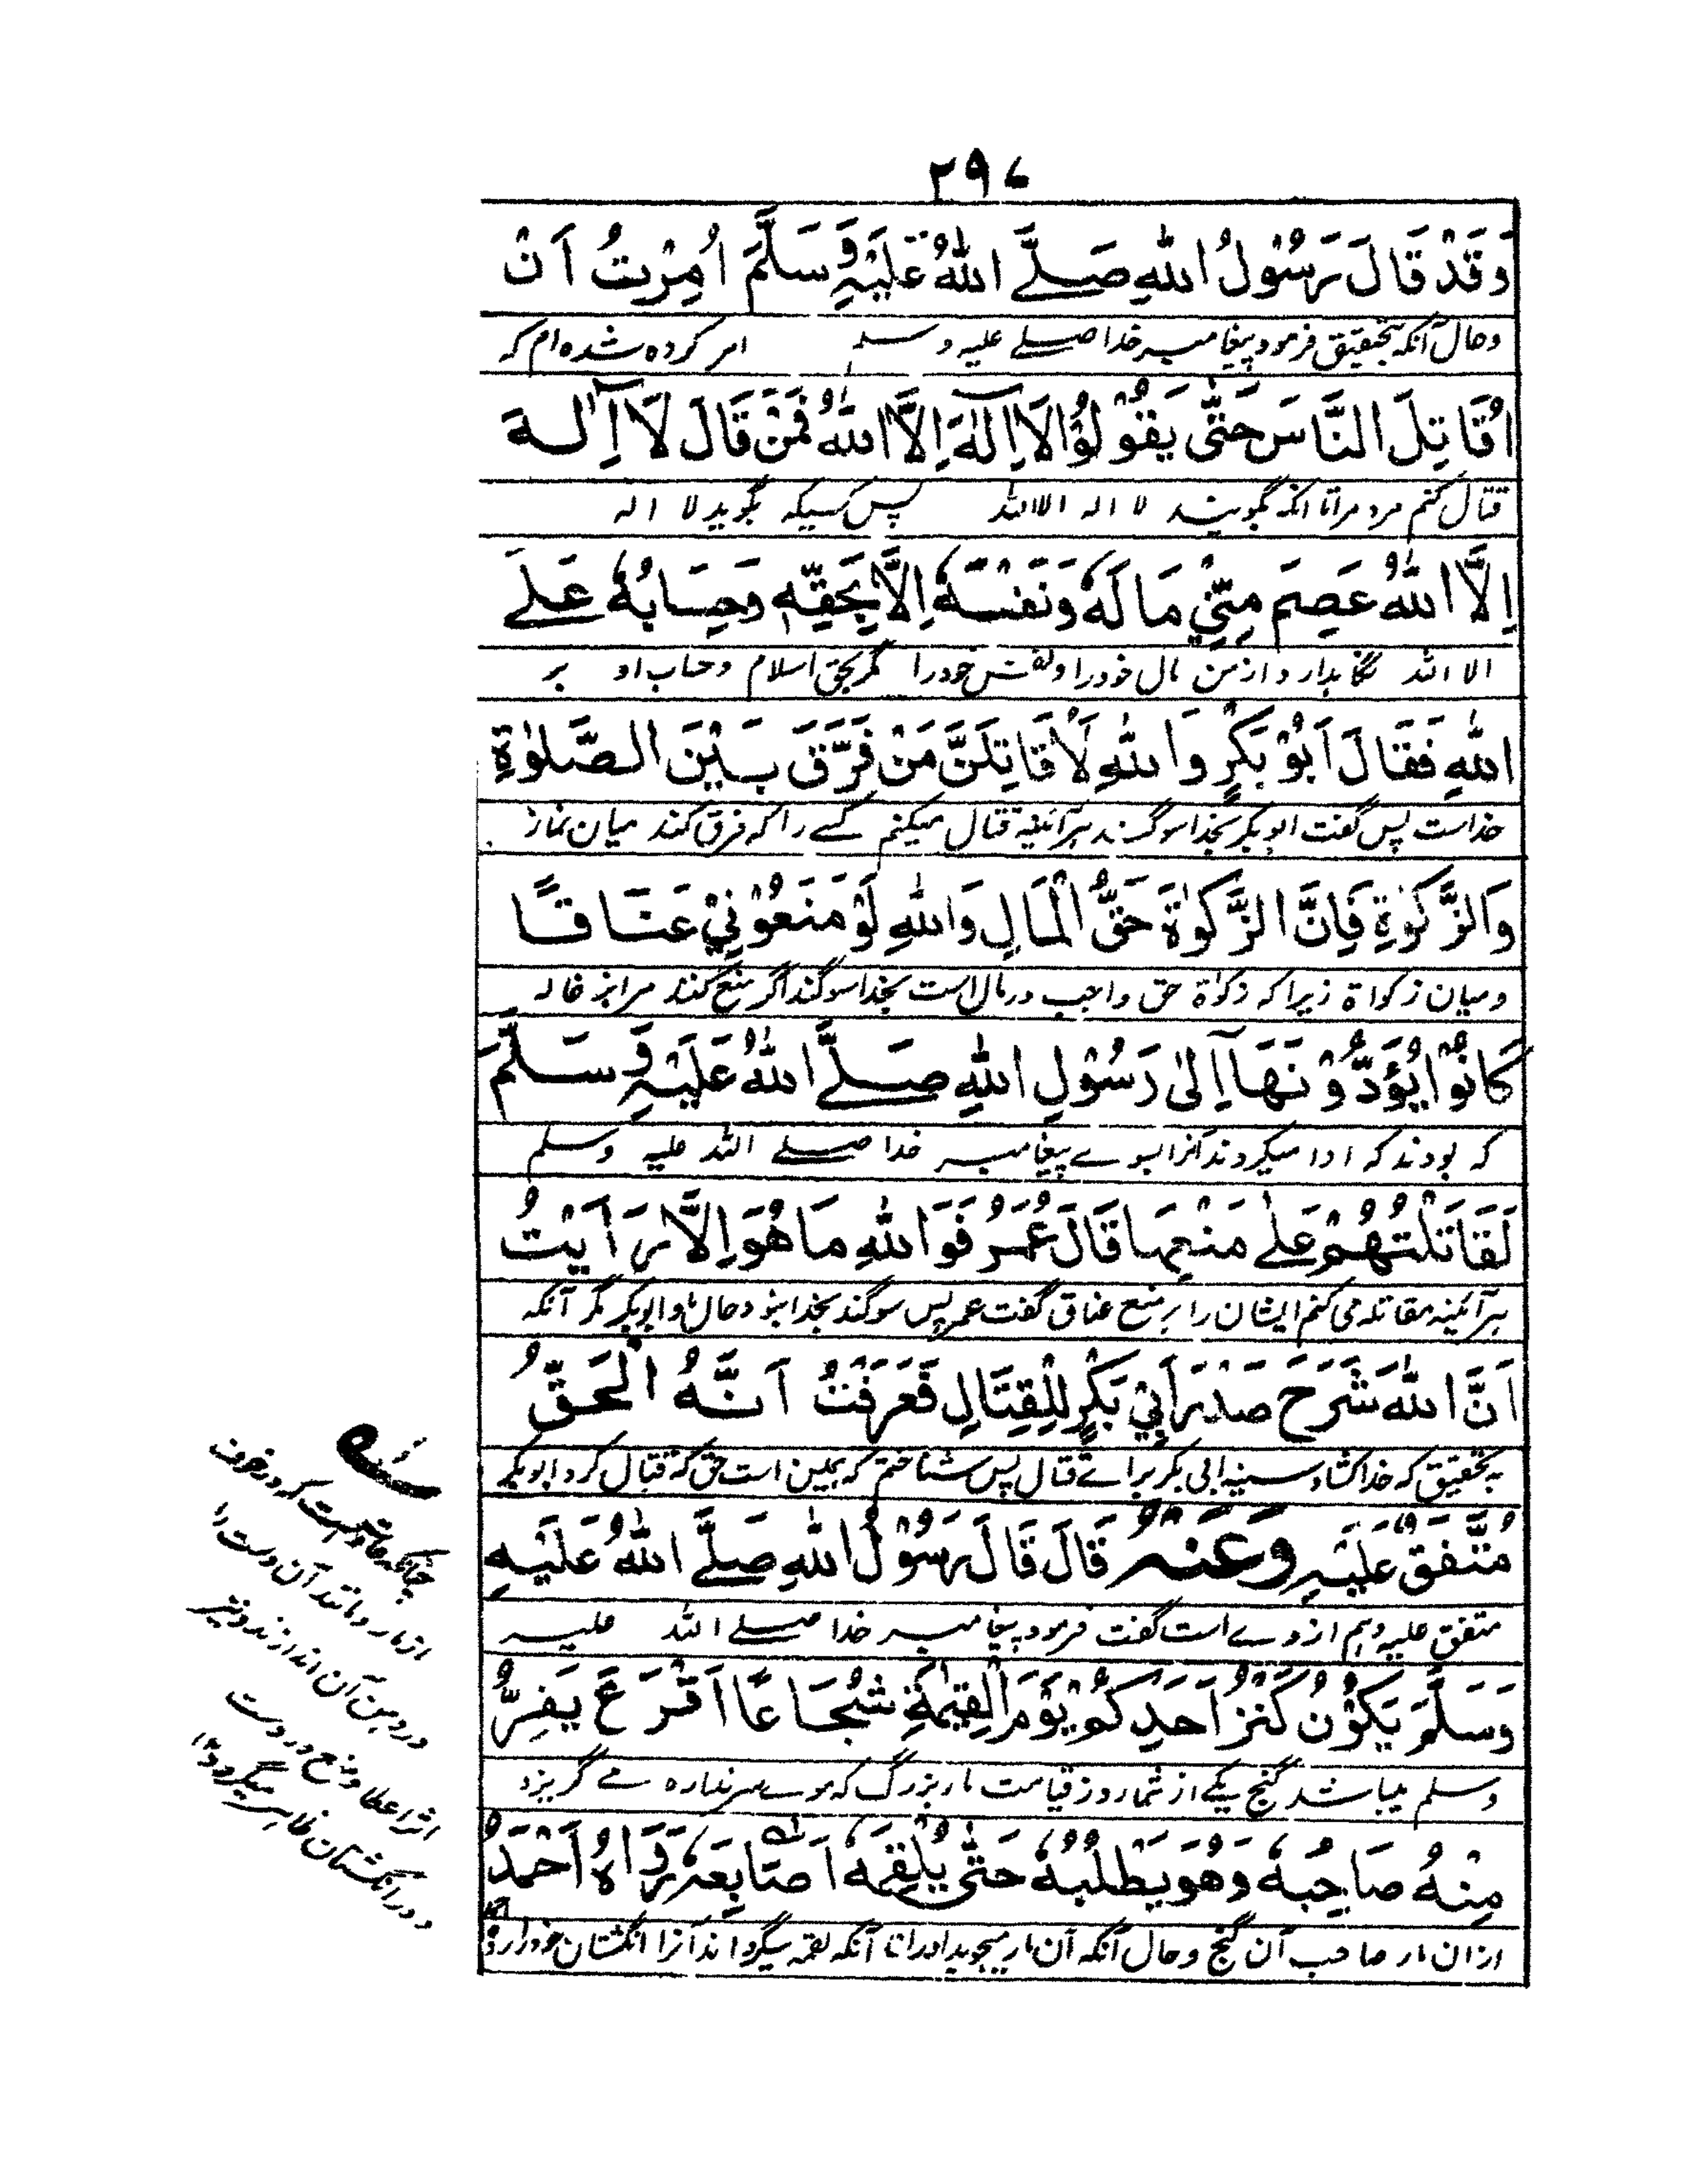 ۲۹۷
وَقَدْ قَالَ رَسُوْلُ اللّٰهِ صَلَّے اللّٰهُ عَلَيْهِ وَسَلَّمَ اُمِرْتُ اَنْ
وحال آنکه بتحقیق فرمود پیغامبر خدا صلے علیه وسلم امر کرده شده ام که
اُقَاتِلَ النَّاسَ حَتّٰى يَقُوْلُوْا لَا اِلٰهَ اِلَّا اللّٰهُ فَمَنْ قَالَ لَا اِلٰهَ
قتال کنم مردمرا تا انکه بگویند لا اله الا الله پس کسیکه بگوید لا اله
اِلَّا اللّٰهُ عَصِمَ مِنِّيْ مَالَهٗ وَنَفْسَهٗ اِلَّا بِحَقِّهٖ وَحِسَابُهٗ عَلَے
الا الله نگاهدارد از من مال خود را ونفس خود را مگر بحق اسلام وحساب او بر
اللّٰهِ فَقَالَ اَبُوْ بَكْرٍ وَاللّٰهِ لَاُقَاتِلَنَّ مَنْ فَرَّقَ بَيْنَ الصَّلٰوةِ
خداست پس گفت ابوبکر بخدا سوگند هرآئینه قتال میکنم کسے را که فرق کند میان نماز
وَالزَّكٰوةِ فَاِنَّ الزَّكٰوةَ حَقُّ الْمَالِ وَاللّٰهِ لَوْ مَنَعُوْنِيْ عَنَاقًا
ومیان زکواة زیرا که زکوٰة حق واجب در مال است بخدا سوگند اگر منع کنند مرا بزغاله
كَانُوْا يُؤَدُّوْنَهَا اِلٰى رَسُوْلِ اللّٰهِ صَلَّے اللّٰهُ عَلَيْهِ وَسَلَّمَ
که بودند که ادا میکردند آنرا بسوے پیغامبر خدا صلے الله علیه وسلم
لَقَاتَلْتُهُمْ عَلٰے مَنْعِهَا قَالَ عُمَرُ فَوَاللّٰهِ مَا هُوَ اِلَّا رَاَيْتُ
هرآئینه مقاتله می کنم ایشان را بر منع عناق گفت عمر پس سوگند بخدا نبود حال ما وابوبکر مگر آنکه
اَنَّ اللّٰهَ شَرَحَ صَدْرَ اَبِيْ بَكْرٍ لِلْقِتَالِ فَعَرَفْتُ اَنَّهُ الْحَقُّ
به تحقیق که خدا کشاد سینه ابی بکر براے قتال پس شناختم که همین است حق که قتال کرد ابوبکر
مُتَّفَقٌ عَلَيْهِ وَعَنْهُ قَالَ قَالَ رَسُوْلُ اللّٰهِ صَلَّے اللّٰهُ عَلَيْهِ
متفق علیه وهم ازوے است گفت فرمود پیغامبر خدا صلے الله علیه
وَسَلَّمَ يَكُوْنُ كَنْزُ اَحَدِكُمْ يَوْمَ الْقِيٰمَةِ شُجَاعًا اَقْرَعَ يَفِرُّ
وسلم میباشد گنج یکے از شما روز قیامت مار بزرگ که موے سر ندارد مے گریزد
مِنْهُ صَاحِبُهٗ وَهُوَ يَطْلُبُهٗ حَتّٰى يُلْقِمَهٗ اَصَابِعَهٗ رَوَاهُ اَحْمَدُ
ازان مار صاحب آن گنج وحال آنکه آن مار میجوید اورا تا آنکه لقمه میگرداند آنرا انگشتان خود را رواه
احمد
چنانکه عادت است که در خوف
از مار ومانند آن دست را
در دهن آن اندازند ونیز
اثر اعطا ومنع در دست
ودر انگشتان ظاهر میگردد ۱۲